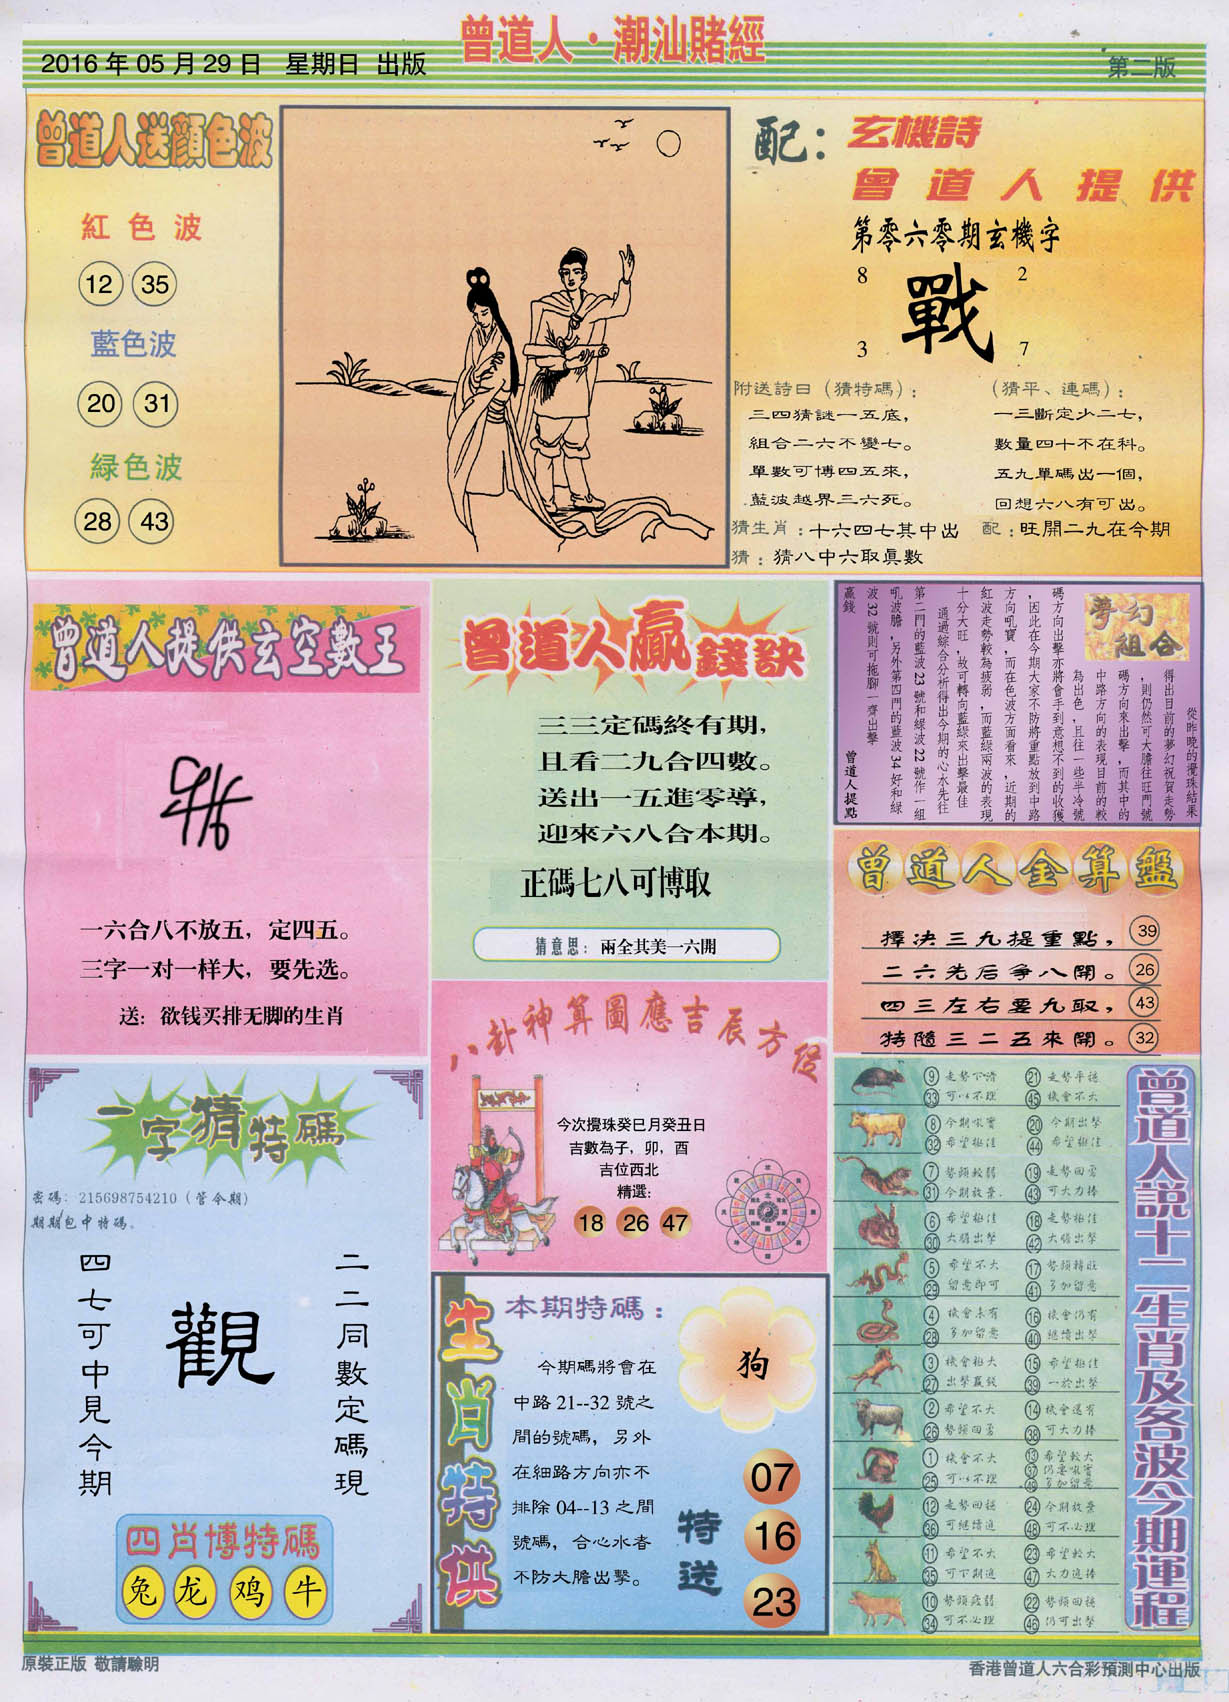 曾道人·潮汕賭經
2016年05月29日 星期日 出版
第二版
曾道人送顏色波
紅色波
12 35
藍色波
20 31
緑色波
28 43
配：
玄機詩
曾道人提供
第零六零期玄機字
8 2
戰
3 7
附送詩日（猜特碼）：
三四猜謎一五底，
組合二六不變七。
單數可博四五來，
藍波越界三六死。
（猜平、連碼）：
一三斷定少二七，
數量四十不在科。
五九單碼出一個，
回想六八有可出。
猜生肖：十六四七其中出
配：旺開二九在今期
猜：猜八中六取眞數
曾道人提供玄空數王
一六合八不放五，定四五。
三字一对一样大，要先选。
送：欲钱买排无脚的生肖
曾道人贏錢訣
三三定碼終有期，
且看二九合四數。
送出一五進零導，
迎來六八合本期。
正碼七八可博取
猜意思：兩全其美一六開
夢幻組合
從昨晚的攪珠結果
得出目前的夢幻祝賀走勢
，則仍然可大膽往旺門號
碼方向來出擊，而其中的
中路方向的表現目前的較
為出色，且往一些半冷號
碼方向出擊亦將會手到意想不到的收獲
，因此在今期大家不防將重點放到中路
方向吼寶，而在色波方面看來，近期的
紅波走勢較為疲弱，而藍綠兩波的表現
十分大旺，故可轉向藍綠來出擊最佳
通過綜合分析得出今期的心水先往
第二門的藍波23號和緑波22號作一組
吼波膽，另外第四門的藍波34好和緑
波32號則可拖腳一齊出擊
贏錢
曾道人提點
曾道人金算盤
擇決三九提重點， 39
二六先后爭八開。 26
四三左右要九取， 43
特隨三二五來開。 32
八卦神算圖應吉辰方位
今次攪珠癸巳月癸丑日
吉數為子，卯，酉
吉位西北
精選：
18 26 47
一字猜特碼
密碼：215698754210（管今期）
期期包中特碼。
二二同數定碼現
觀
四七可中見今期
四肖博特碼
兔 龙 鸡 牛
生肖特供
本期特碼：
今期碼將會在
中路21--32號之
間的號碼，另外
在細路方向亦不
排除04--13之間
號碼，合心水者
不防大膽出擊。
狗
特送
07
16
23
曾道人說十二生肖及各波今期運程
9 走勢下滑 21 走勢平穩
33 可以不理 45 機會不大
8 今期吼寶 20 今期出擊
32 希望極佳 44 希望極佳
7 勢頭較弱 19 走勢回勇
31 今期放棄 43 可大力捧
6 希望極佳 18 走勢極佳
30 大膽出擊 42 大膽出擊
5 希望不大 17 勢頭轉旺
29 留意即可 41 多加留意
4 機會未有 16 機會仍有
28 多加留意 40 繼續出擊
3 機會極大 15 希望極佳
27 出擊贏錢 39 一於出擊
2 希望不大 14 機會還有
26 勢頭回勇 38 可大力捧
1 機會不大 13 希望較大
25 可以不理 37 仍要吼實
49 多加留意
12 走勢回穩 24 今期放棄
36 可繼續追 48 可不必理
11 希望不大 23 希望較大
35 可下期追 47 大力追捧
10 勢頭疲弱 22 勢頭回穩
34 可不必理 46 仍可出擊
原裝正版 敬請驗明
香港曾道人六合彩預測中心出版